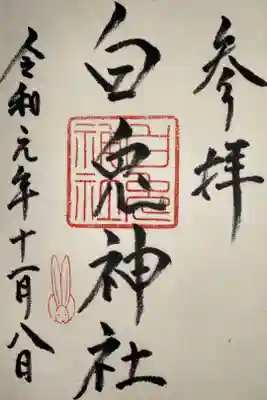 参拝
白兎神社
令和元年十一月八日